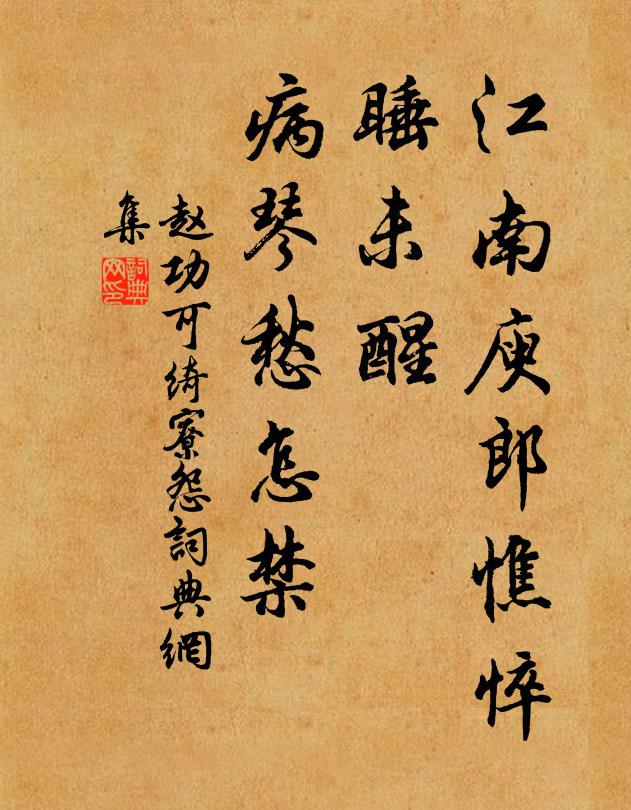 江南庾郎憔悴
睡未醒
病琴愁怎禁
赵功可绮寮怨詞典網
集
詞典网印